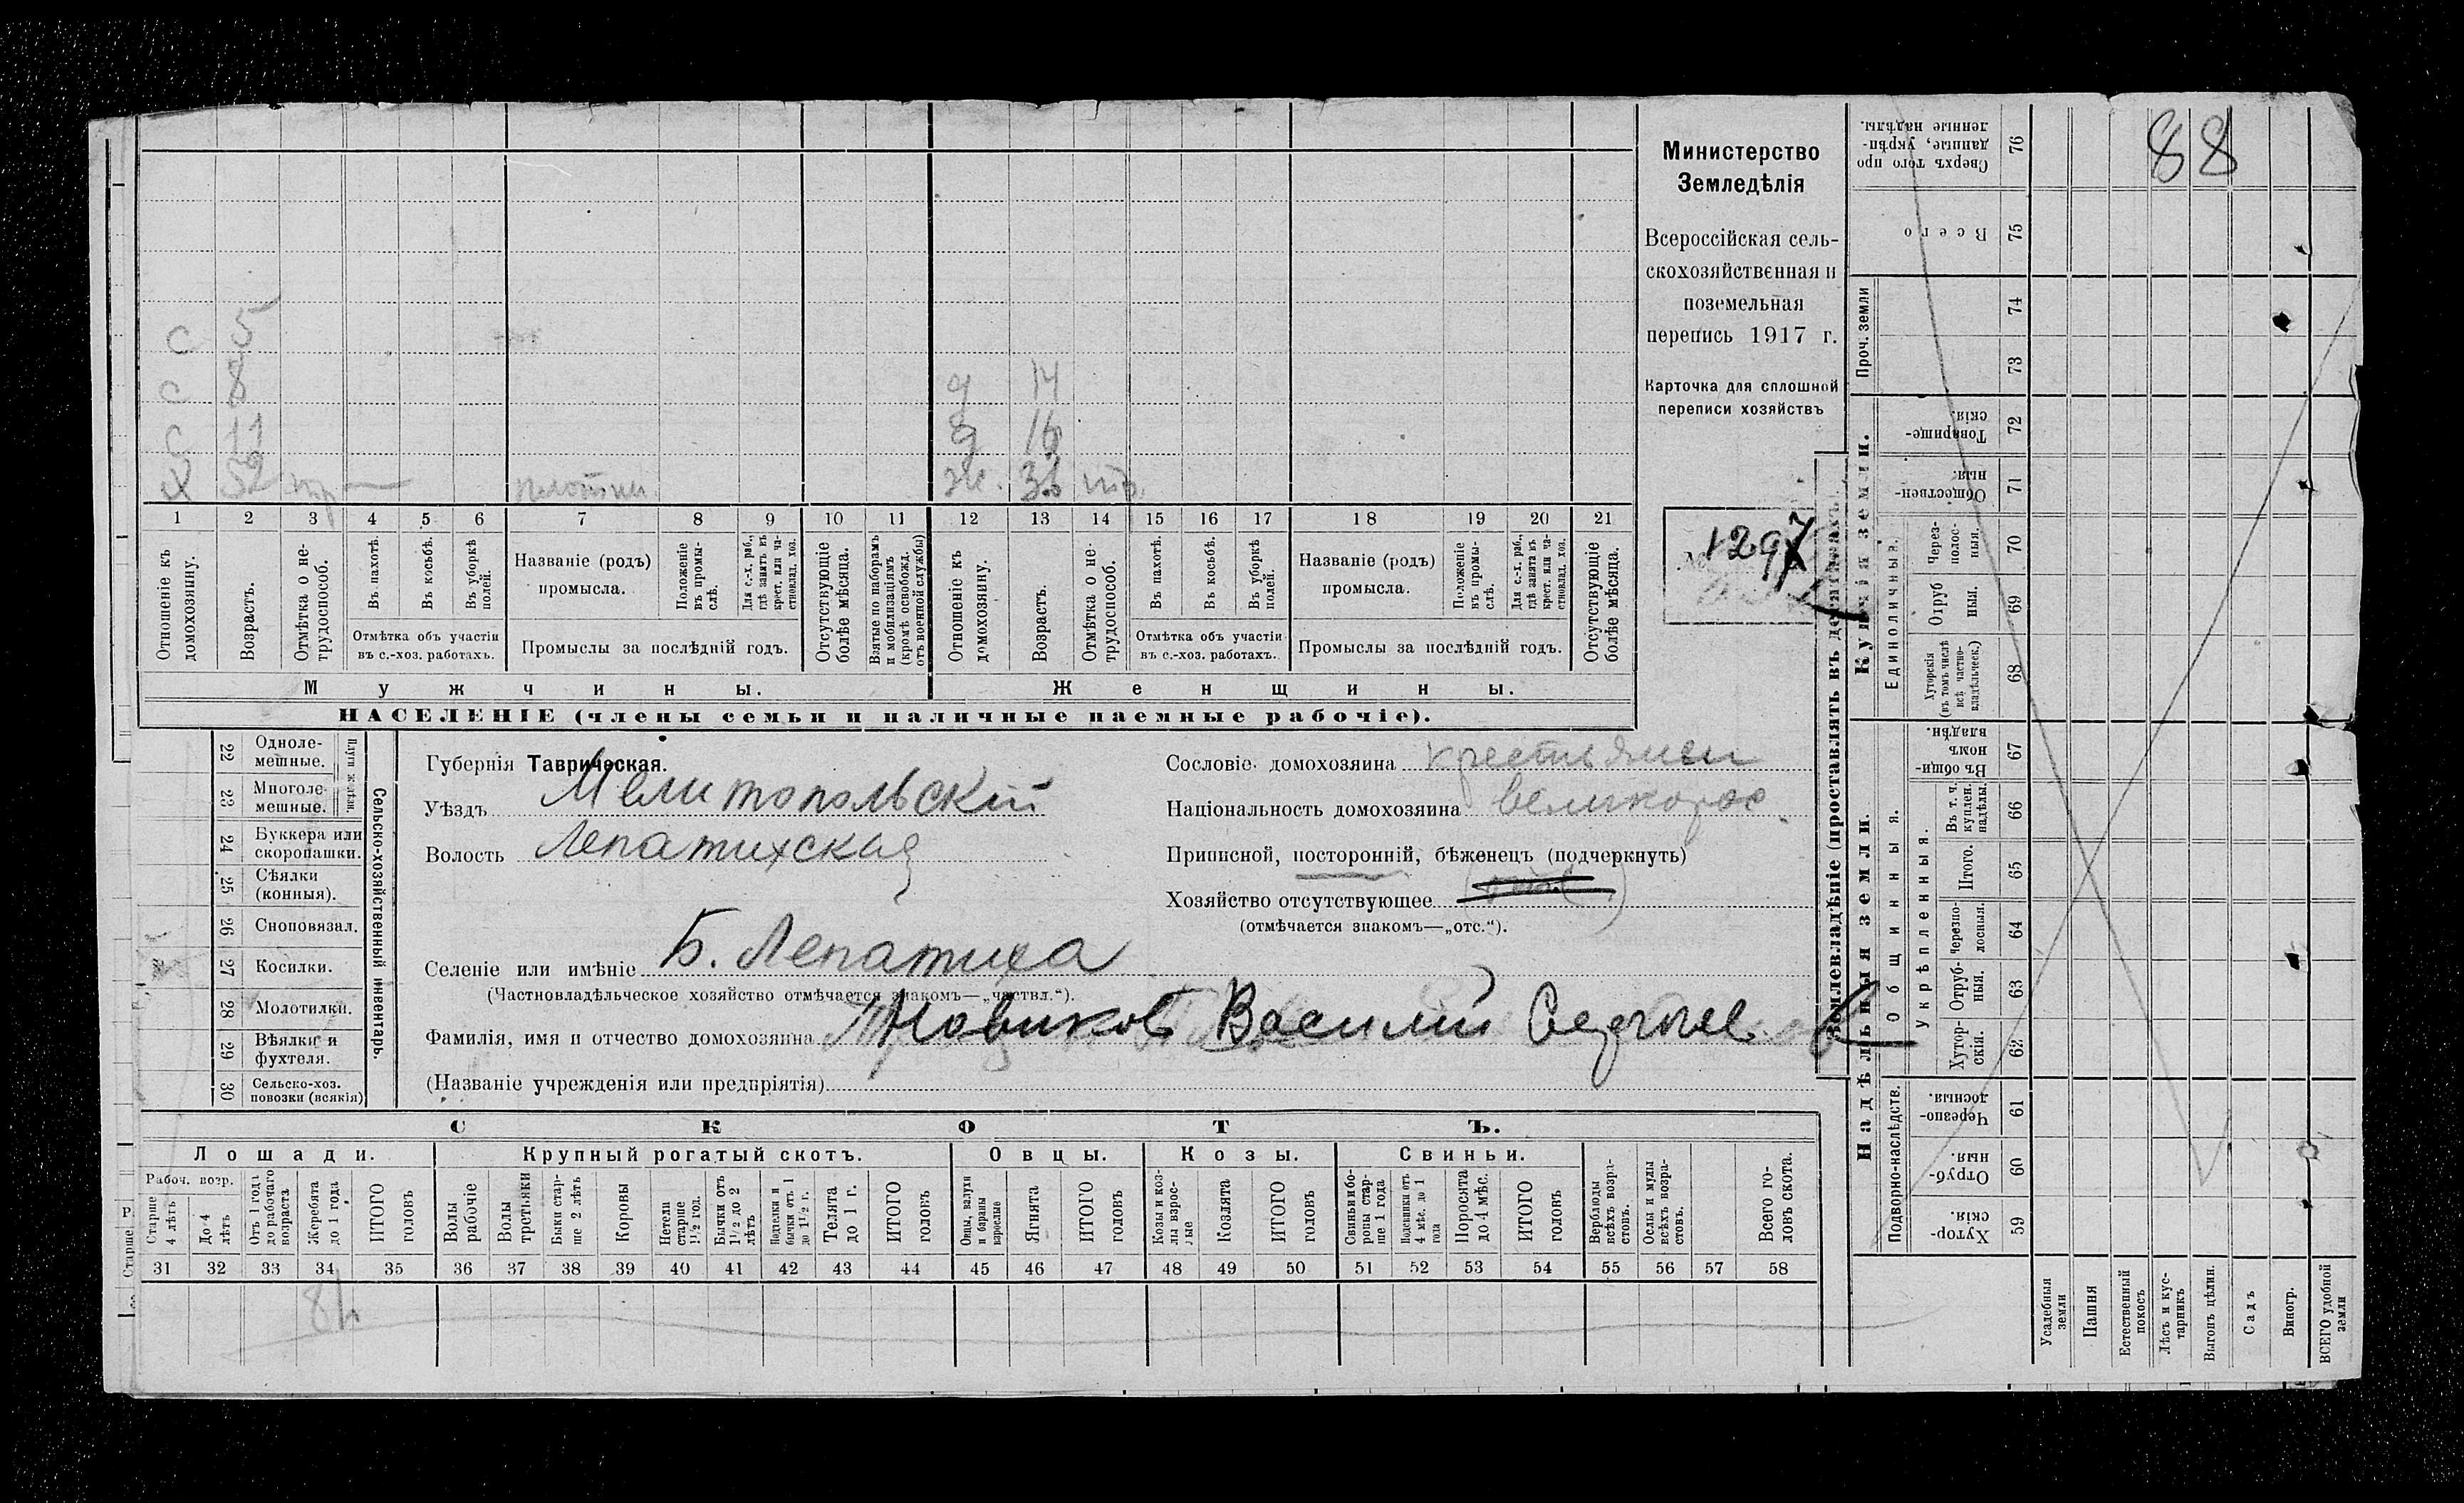 88
Министерство
Земледѣлія
Всероссійская сель-
скохозяйственная и
поземельная
перепись 1917 г.
Карточка для сплошной
переписи хозяйствъ
№ 1297
с 5
с 8
с 11
х 52
плотни.
д 14
д 16
ж.
1 2 3 4 5 6 7 8 9 10 11 12 13 14 15 16 17 18 19 20 21
Отношеніе къ домохозяину.
Возрастъ.
Отмѣтка о не-трудоспособ.
Въ пахотѣ.
Въ косьбѣ.
Въ уборкѣ полей.
Отмѣтка объ участіи
въ с.-хоз. работахъ.
Названіе (родъ)
промысла.
Положеніе въ промы-слѣ.
Для с.-х. раб., гдѣ занятъ въ крест. или ча-стновлад. хоз.
Промыслы за послѣдній годъ.
Отсутствующіе болѣе мѣсяца.
Взятые по наборамъ и мобилизаціямъ (кромѣ освобожд. отъ военной службы)
Отношеніе къ домохозяину.
Возрастъ.
Отмѣтка о не-трудоспособ.
Въ пахотѣ.
Въ косьбѣ.
Въ уборкѣ полей.
Отмѣтка объ участіи
въ с.-хоз. работахъ.
Названіе (родъ)
промысла.
Положеніе въ промы-слѣ.
Для с.-х. раб., гдѣ занята въ крест. или ча-стновлад. хоз.
Промыслы за послѣдній годъ.
Отсутствующіе болѣе мѣсяца.
Мужчины.
Женщины.
НАСЕЛЕНІЕ (члены семьи и наличные наемные рабочіе).
22 Одноле-мешные.
23 Многоле-мешные.
24 Буккера или скоропашки.
25 Сѣялки (конныя).
26 Сноповязал.
27 Косилки.
28 Молотилки.
29 Вѣялки и фухтеля.
30 Сельско-хоз. повозки (всякія)
Сельско-хозяйственный инвентарь.
Губернія Таврическая.
Уѣздъ Мелитопольскій
Волость Лепатихская
Селеніе или имѣніе Б. Лепатиха
(Частновладѣльческое хозяйство отмѣчается знакомъ—„частвл.“).
Фамилія, имя и отчество домохозяина Новиковъ Василій
(Названіе учрежденія или предпріятія)
Сословіе домохозяина крестьянин
Національность домохозяина великорос.
Приписной, посторонній, бѣженецъ (подчеркнуть)
Хозяйство отсутствующее
(отмѣчается знакомъ—„отс.“).
СКОТЪ.
Лошади.
Крупный рогатый скотъ.
Овцы.
Козы.
Свиньи.
Рабоч. возр.
Старше 4 лѣтъ
До 4 лѣтъ
Отъ 1 года до рабочаго возраста
Жеребята до 1 года
ИТОГО головъ
Волы рабочіе
Волы третьяки
Быки стар-ше 2 лѣтъ
Коровы
Нетели старше 1½ год.
Бычки отъ 1½ до 2 лѣтъ
Подтелки и бычки отъ 1 до 1½ г.
Телята до 1 г.
ИТОГО головъ
Овцы, валухи и бараны взрослые
Ягнята
ИТОГО головъ
Козы и коз-лы взрос-лые
Козлята
ИТОГО головъ
Свиньи и бо-ровы стар-ше 1 года
Подсвинки отъ 4 мѣс. до 1 года
Поросята до 4 мѣс.
ИТОГО головъ
Верблюды всѣхъ возра-стовъ.
Ослы и мулы всѣхъ возра-стовъ.
Всего го-ловъ скота.
31 32 33 34 35 36 37 38 39 40 41 42 43 44 45 46 47 48 49 50 51 52 53 54 55 56 57 58
Землевладѣніе (проставлять въ десятинахъ)
Купчія земли.
Надѣльныя земли.
Сверхъ того про данные, укрѣп-ленные надѣлы. 76
Всего 75
Проч. земли
74
73
Товарище-скія. 72
Обществен-ныя 71
Единоличныя.
Через-полос-ныя. 70
Отруб ныя. 69
Хуторскія (въ томъ числѣ всѣ частно-владѣльческ.) 68
Общинныя.
Въ общи-номъ владѣн. 67
Укрѣпленныя.
Въ т. ч. куплен. надѣлы. 66
Итого. 65
Черезпо-лосныя. 64
Отруб-ныя. 63
Хутор-скія. 62
Подворно-наслѣдств.
Черезпо-лосныя. 61
Отруб-ныя. 60
Хутор-скія. 59
Усадебныя земли
Пашня
Естественный покосъ
Лѣсъ и кус-тарникъ
Выгонъ цѣлин.
Садъ
Виногр.
ВСЕГО удобной земли